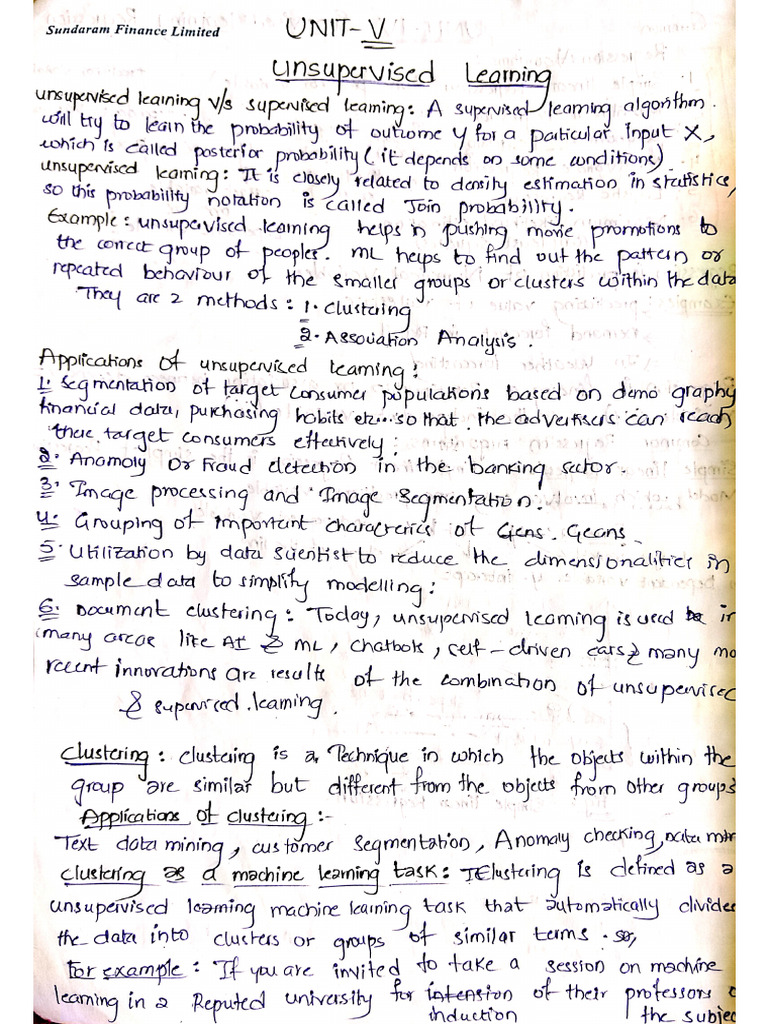 Sundaram Finance Limited
UNIT-V
Unsupervised Learning
unsupervised learning v/s supervised learning: A supervised learning algorithm.
will try to learn the probability of outcome y for a particular input X,
which is called posterior probability (it depends on some conditions)
unsupervised learning: It is closely related to density estimation in statistics,
so this probability notation is called Join probability.
Example: unsupervised learning helps in pushing movie promotions to
the correct group of peoples. ML helps to find out the pattern or
repeated behaviour of the smaller groups or clusters within the data
They are 2 methods: 1. clustering
2. Association Analysis.
Applications of unsupervised learning:
1. Segmentation of target consumer populations based on demo graphy
financial data, purchasing habits etc... so that the advertisers can reach
there target consumers effectively:
2. Anomoly or Fraud detection in the banking sector.
3. Image processing and Image Segmentation.
4. Grouping of important characterics of Gens. Geans
5. Utilization by data scientist to reduce the dimensionalities in
sample data to simplify modelling:
6. Document clustering: Today, unsupervised learning is used in
many areas like AI & ML, chatbots, self-driven cars & many mo
recent innovations are results of the combination of unsupervised
& supervised learning.
Clustering: clustering is a Technique in which the objects within the
group are similar but different from the objects from other groups
Applications of clustering:-
Text data mining, customer segmentation, Anomaly checking, data min
clustering as a machine learning task: clustering is defined as a
unsupervised learning machine learning task that automatically divides
the data into clusters or groups of similar terms. so,
For example: If you are invited to take a session on machine
learning in a Reputed university for intension of their professors
induction the subjec